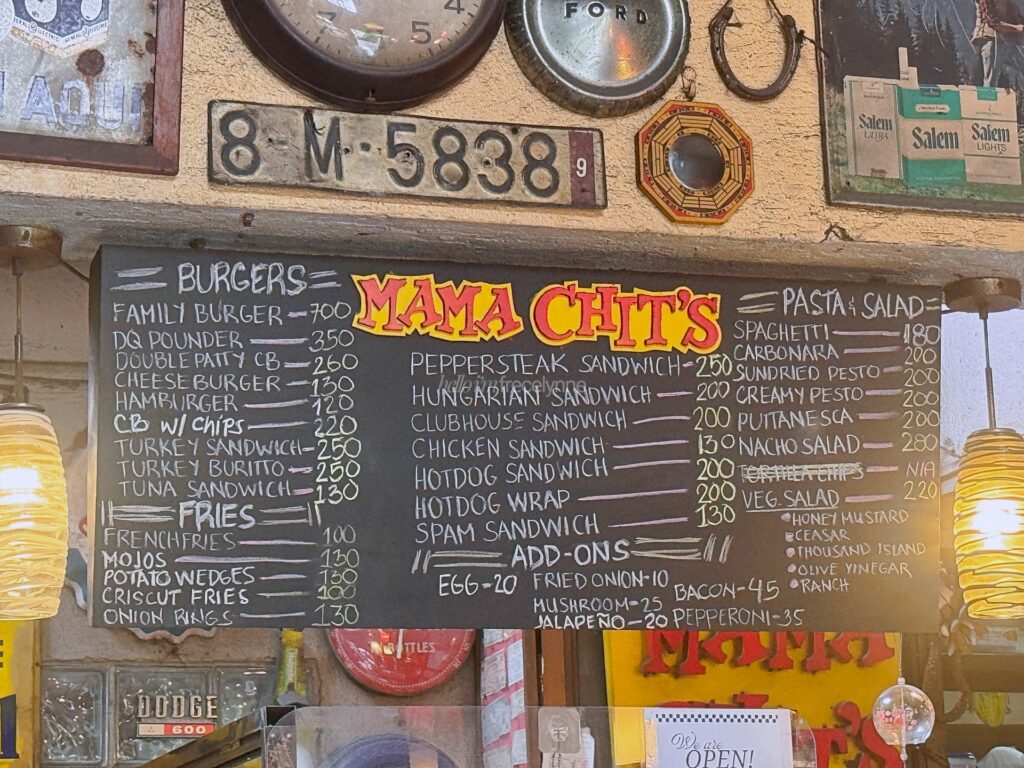 4
7
5
FORD
8 M·5838 9
Salem ULTRA
Salem
Salem LIGHTS
BURGERS
FAMILY BURGER - 700
DQ POUNDER - 350
DOUBLE PATTY CB - 260
CHEESE BURGER - 130
HAMBURGER - 120
CB W/ CHIPS - 220
TURKEY SANDWICH - 250
TURKEY BURITTO - 250
TUNA SANDWICH - 130
FRIES
FRENCH FRIES - 100
MOJOS - 130
POTATO WEDGES - 130
CRISCUT FRIES
ONION RINGS - 130
MAMA CHIT'S
PEPPERSTEAK SANDWICH - 250
HUNGARIAN SANDWICH - 200
CLUBHOUSE SANDWICH - 200
CHICKEN SANDWICH - 130
HOTDOG SANDWICH - 200
HOTDOG WRAP - 200
SPAM SANDWICH - 130
ADD-ONS
EGG - 20
FRIED ONION - 10
MUSHROOM - 25
JALAPEÑO - 20
BACON - 45
PEPPERONI - 35
PASTA & SALAD
SPAGHETTI - 180
CARBONARA - 200
SUNDRIED PESTO - 200
CREAMY PESTO - 200
PUTTANESCA - 200
NACHO SALAD - 280
TORTILLA CHIPS - N/A
VEG. SALAD - 220
HONEY MUSTARD
CEASAR
THOUSAND ISLAND
OLIVE VINEGAR
RANCH
BOTTLES
DODGE
600
MAMA
We are
OPEN!